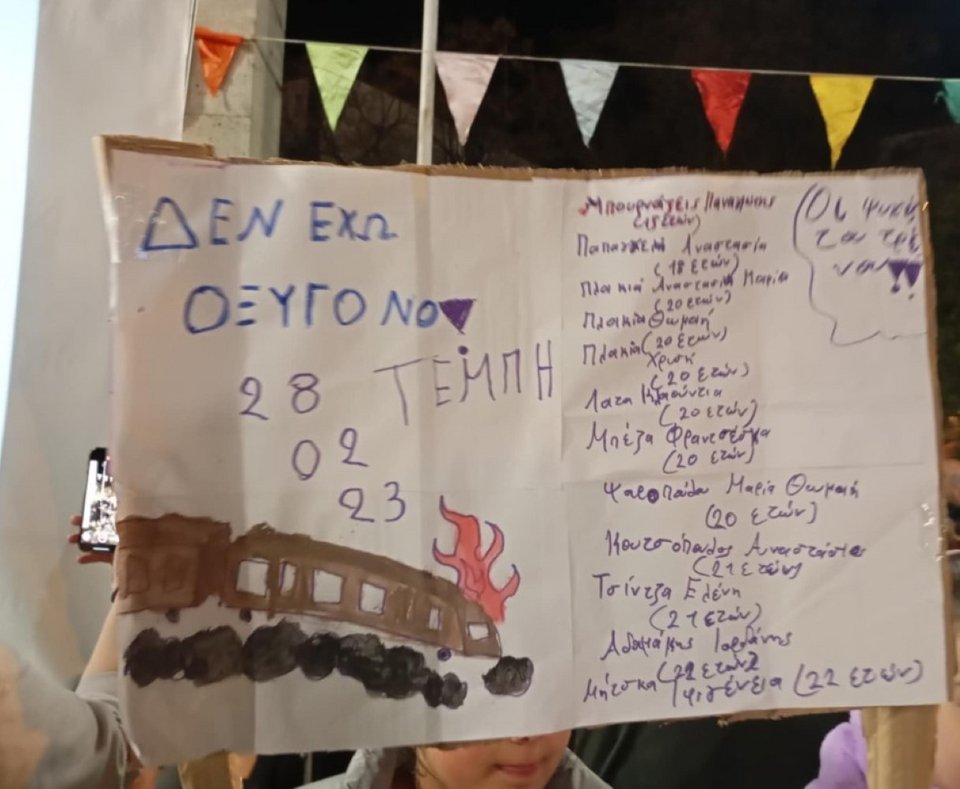 ΔΕΝ ΕΧΩ
ΟΞΥΓΟΝΟ
28 ΤΕΜΠΗ
02
23
(15 ετών)
Αναστασία
(18 ετών)
Πλακιά Αναστασία Μαρία
(20 ετών)
Πλακιά Θωμαή
(20 ετών)
Πλακιά
Χρυσή
(20 ετών)
Λατα Κλαούντια
(20 ετών)
Μπέζα Φραντσέσκα
(20 ετών)
Ψαροπούλου Μαρία Θωμαή
(20 ετών)
Κουτσόπουλος Αναστάσιος
(21 ετών)
Τσίντζα Ελένη
(21 ετών)
Αδαμάκης Ιορδάνης
(22 ετών)
Μήτσκα Ιφιγένεια (22 ετών)
Οι ψυχές
του τρέ
νου!!